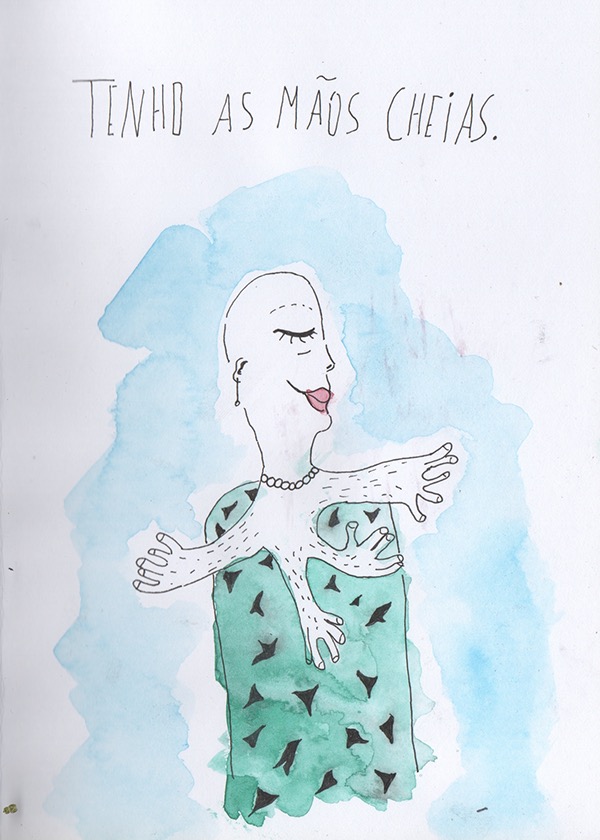 TENHO AS MÃOS CHEiAS.